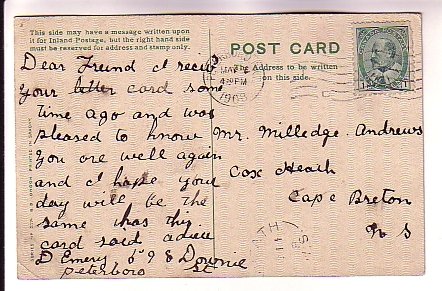 This side may have a message written upon
it for Inland Postage, but the right hand side
must be reserved for address and stamp only.
Dear Freind I reciv
your letter card some
time ago and was
pleased to know
you are well again
and I hope your
day will be the
same has this
card said
D Emery 598 Downie
peterboro St
POST CARD
The Address to be written
on this side.
MAY
PM
1908
Mr. Milledge Andrews
Cox Heath
Cape Breton
N S